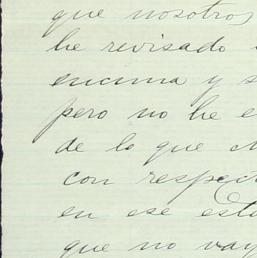 que nosotros
he revisado
encima y s
pero no he e
de lo que
con respec
en ese esta
que no vay